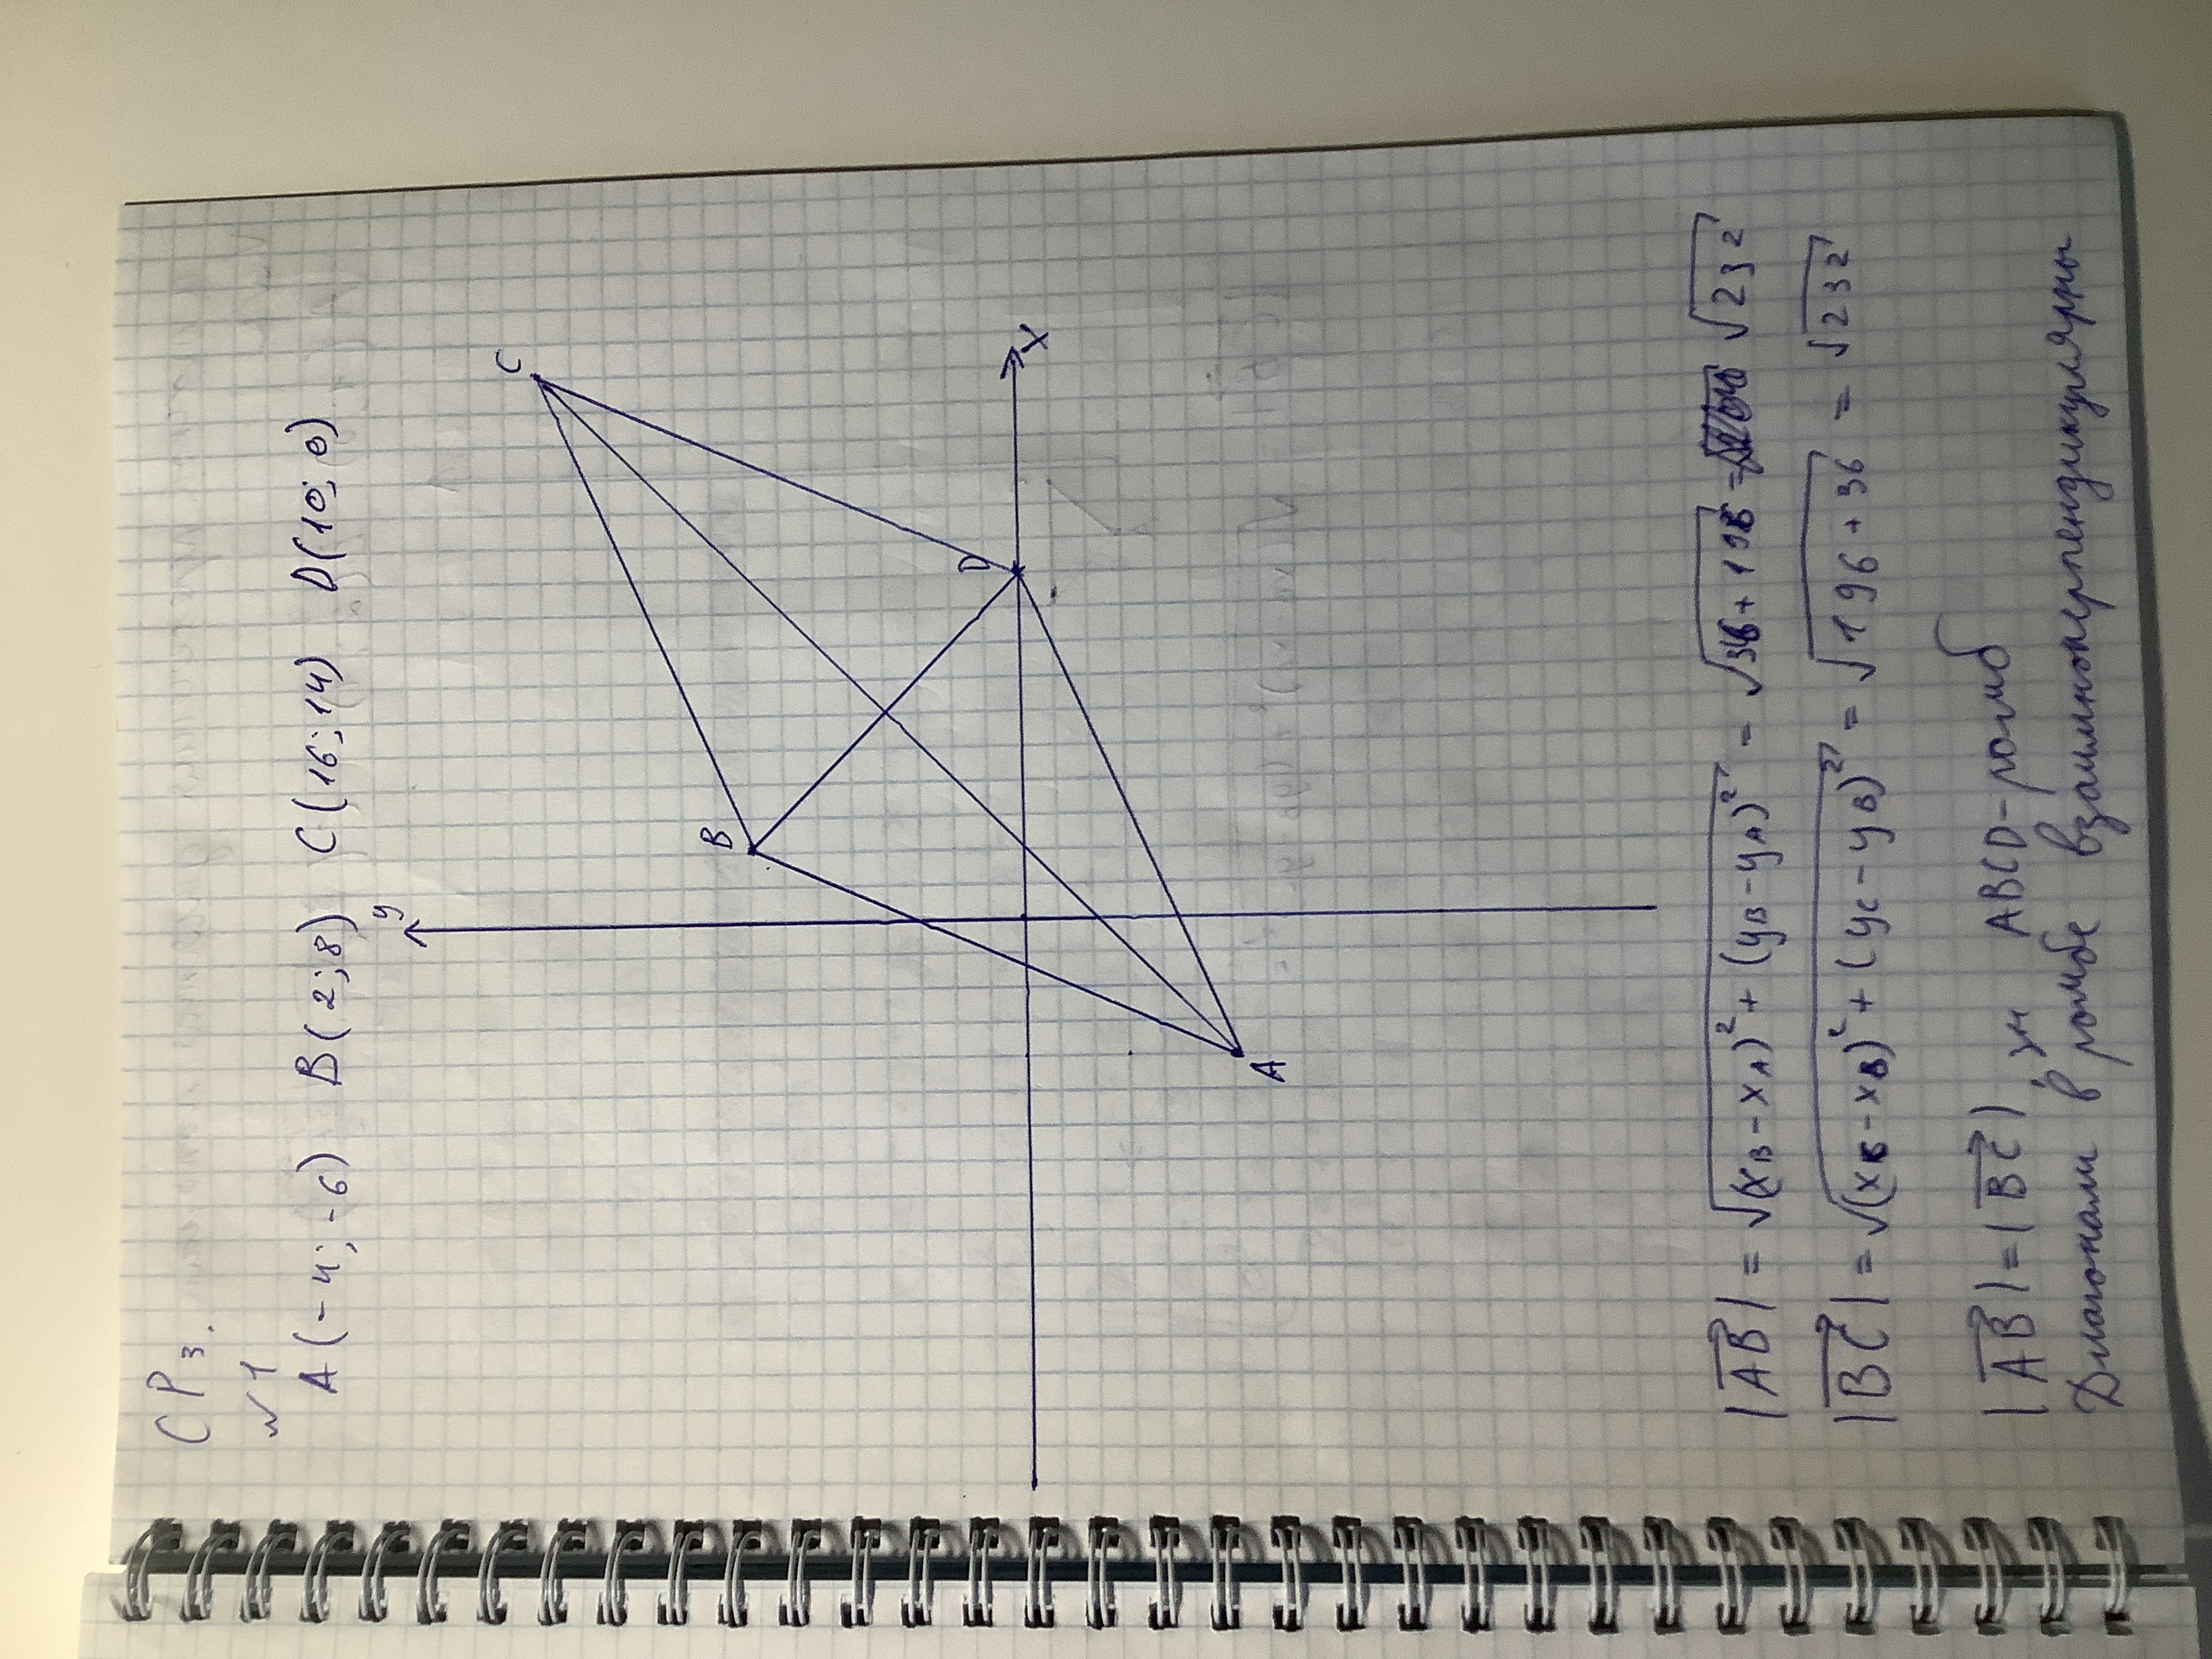 СР 3.
№1
A(-4; -6) B(2; 8) C(16; 14) D(10; 0)
y
C
B
D
x
A
|AB⃗| = √((xB - xA)² + (yB - yA)²) = √(36 + 196) = √232
|BC⃗| = √((xC - xB)² + (yC - yB)²) = √(196 + 36) = √232
|AB⃗| = |BC⃗|, зн ABCD - ромб
Диагонали в ромбе взаимноперпендикулярны